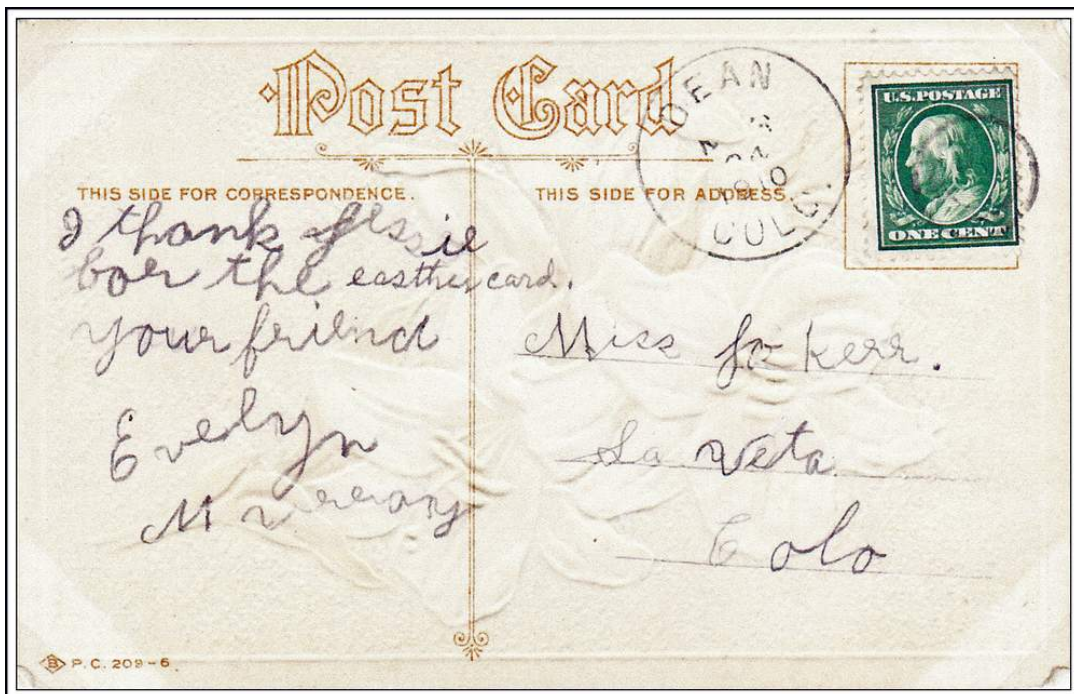 Post Card
DEAN
1910
COLO.
U.S. POSTAGE
ONE CENT
THIS SIDE FOR CORRESPONDENCE.
THIS SIDE FOR ADDRESS.
I thank Jessie
for the easther card.
Your friend
Evelyn
Murray
Miss Jo Kerr.
La Veta
Colo
B P.C. 209-6.